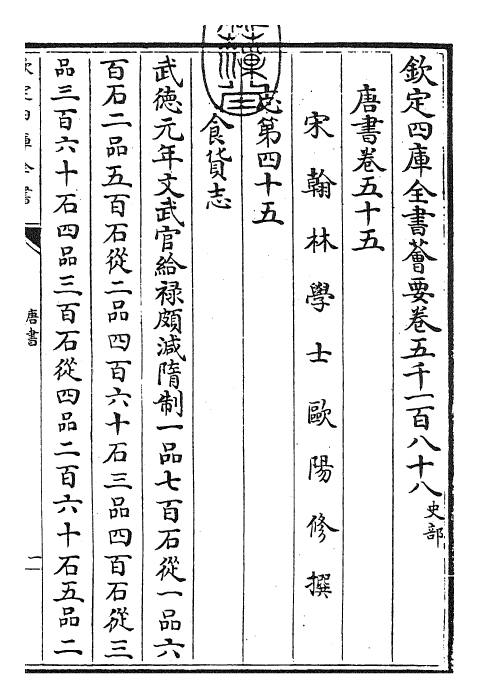 欽定四庫全書薈要卷五千一百八十八 史部
唐書卷五十五
宋翰林學士歐陽修撰
志第四十五
食貨志
武德元年文武官給禄頗減隋制一品七百石從一品六
百石二品五百石從二品四百六十石三品四百石從三
品三百六十石四品三百石從四品二百六十石五品二
欽定四庫全書
唐書
一